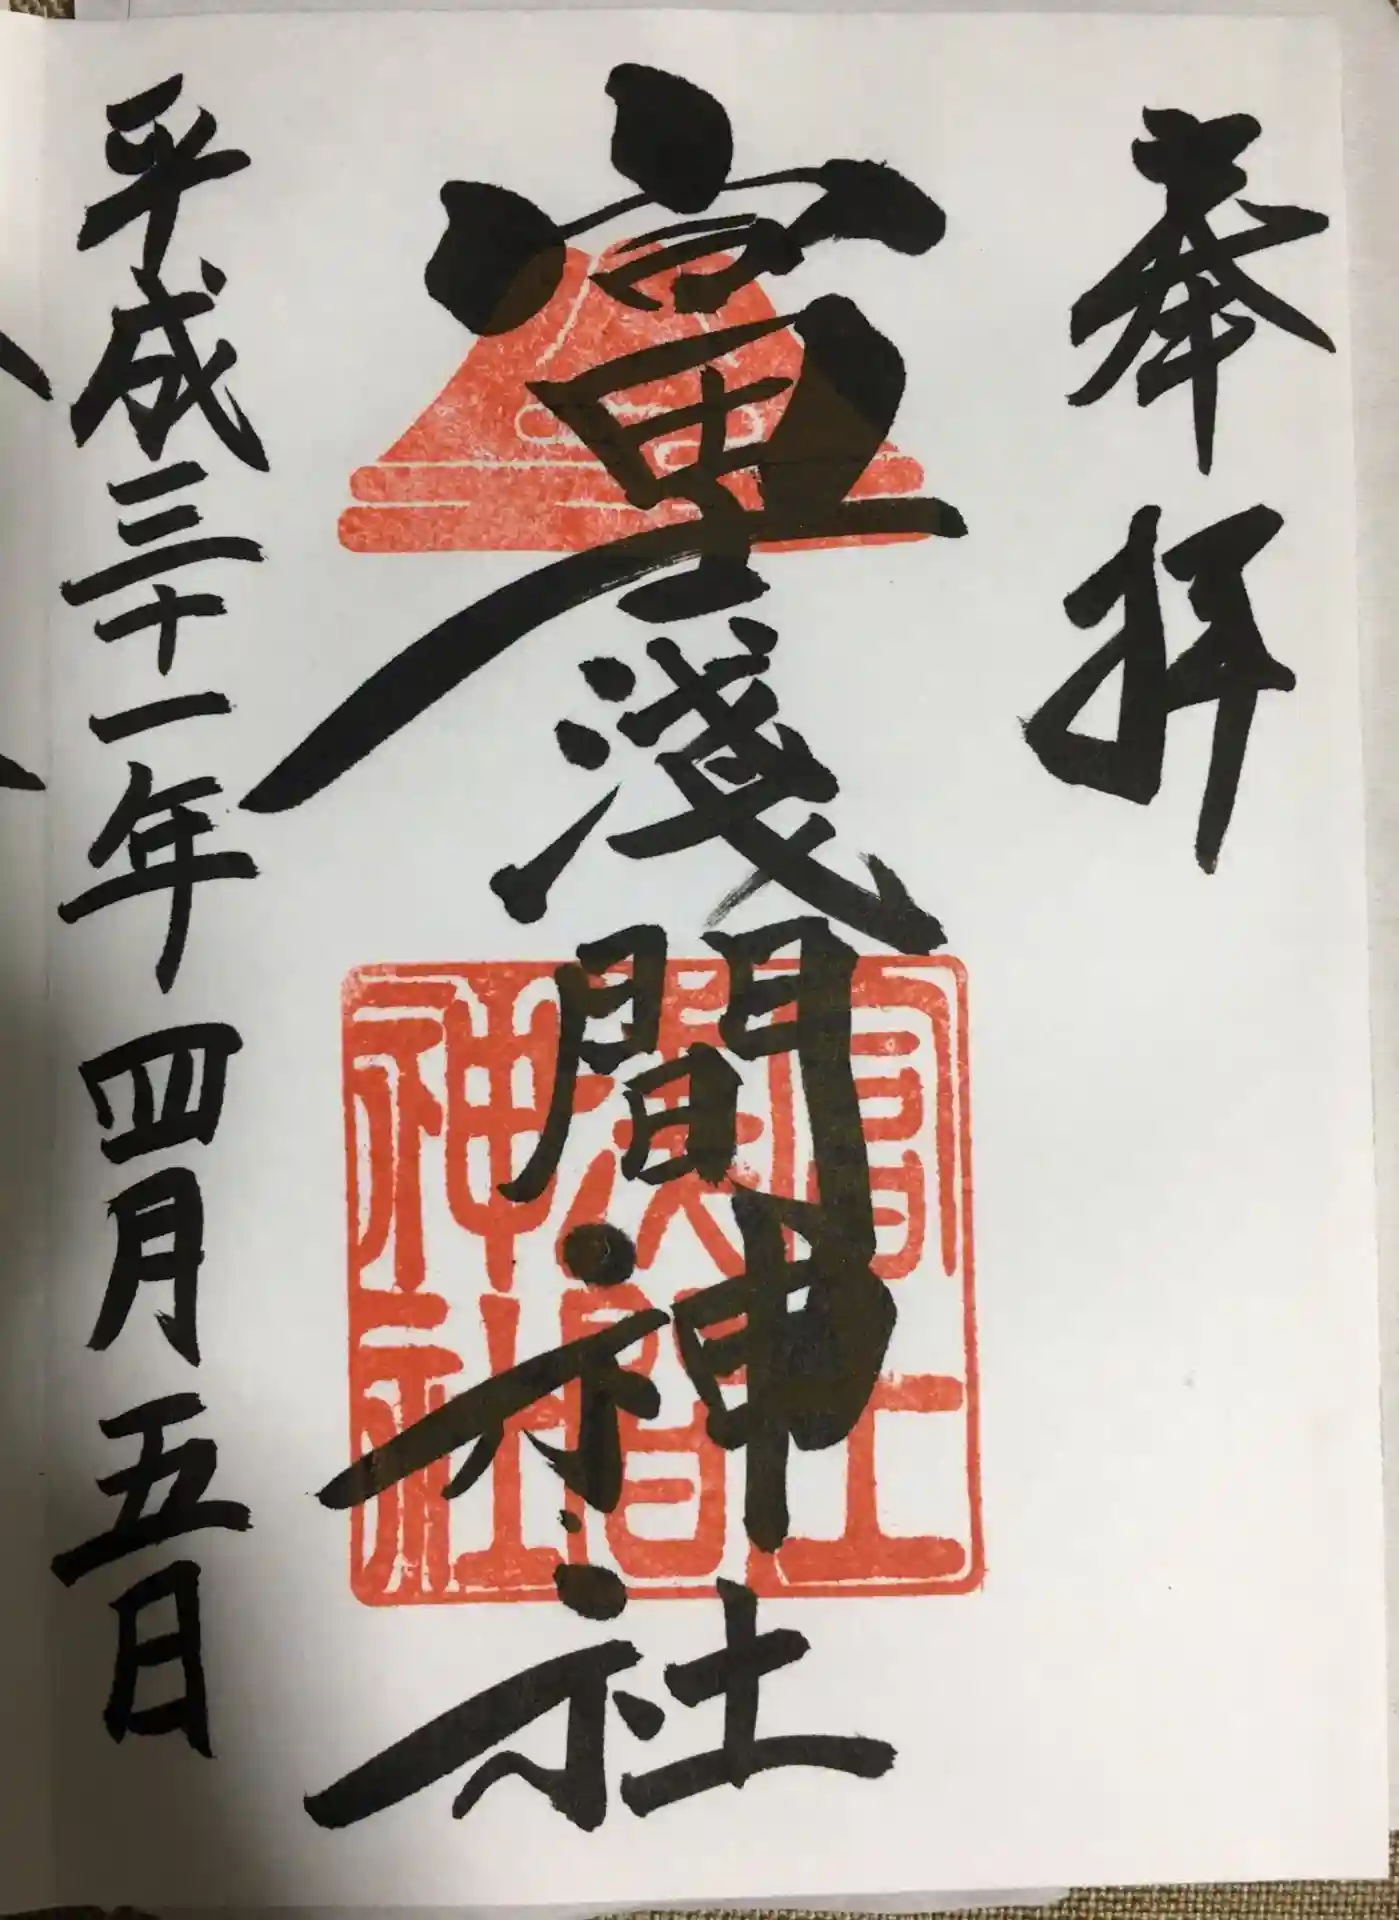 奉拝
富士淺間神社
富士
淺間
神社
平成三十一年四月五日